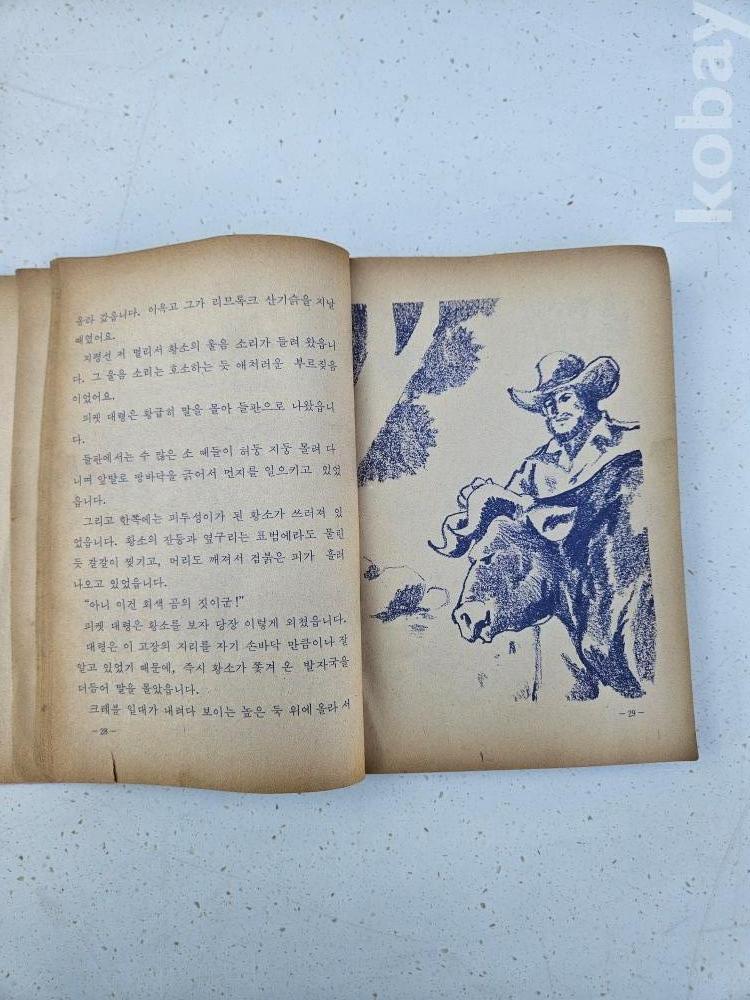 올라 갔읍니다. 이윽고 그가 리브톡크 산기슭을 지날
때였어요.
지평선 저 멀리서 황소의 울음 소리가 들려 왔읍니
다. 그 울음 소리는 호소하는 듯 애처러운 부르짖음
이었어요.
피켓 대령은 황급히 말을 몰아 들판으로 나왔읍니
다.
들판에서는 수 많은 소 떼들이 허둥 지둥 몰려 다
니며 앞발로 땅바닥을 긁어서 먼지를 일으키고 있었
읍니다.
그리고 한쪽에는 피투성이가 된 황소가 쓰러져 있
었읍니다. 황소의 잔등과 옆구리는 표범에라도 물린
듯 갈갈이 찢기고, 머리도 깨져서 검붉은 피가 흘러
나오고 있었읍니다.
"아니 이건 회색 곰의 짓이군!"
피켓 대령은 황소를 보자 당장 이렇게 외쳤읍니다.
대령은 이 고장의 지리를 자기 손바닥 만큼이나 잘
알고 있었기 때문에, 즉시 황소가 쫓겨 온 발자국을
더듬어 말을 몰았읍니다.
크레블 일대가 내려다 보이는 높은 둑 위에 올라 서
— 28 —
— 29 —
kobay